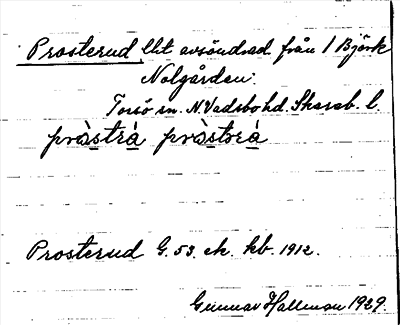 Prosterud lht avsöndrad från 1 Björk
Nolgården.
Torsö sn. N. Vadsbo hd. Skarab. l.
pràstrà pràstrà
Prosterud G. 53. ek. kb. 1912.
Gunnar Hallman 1929.